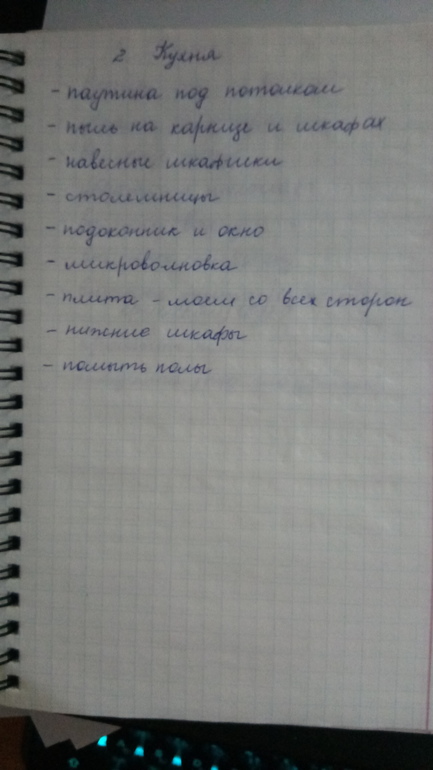 2 Кухня
- паутина под потолком
- пыль на карнизе и шкафах
- навесные шкафчики
- столешницы
- подоконник и окно
- микроволновка
- плита - моем со всех сторон
- нижние шкафы
- помыть полы